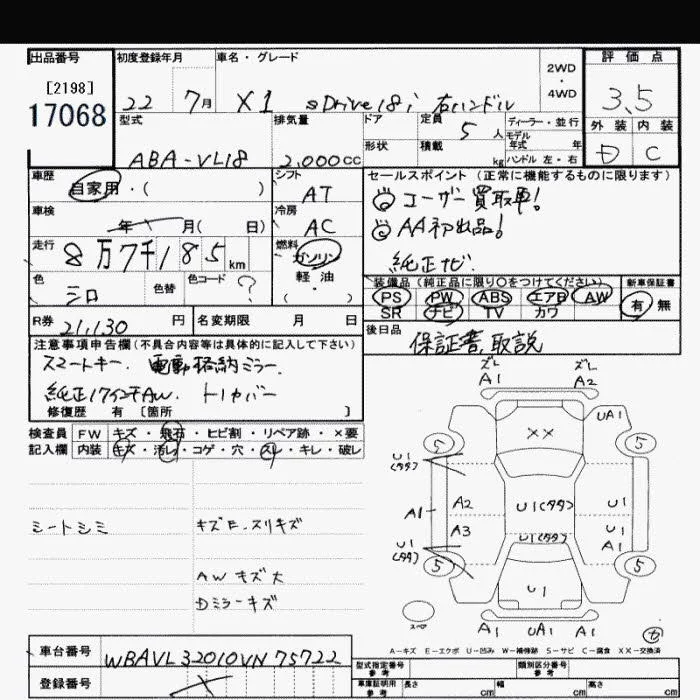 出品番号
[2198]
17068
初度登録年月
22 7月
車名・グレード
X1 sDrive18i 右ハンドル
2WD
・
4WD
評価点
3.5
外装 内装
D C
型式
ABA-VL18
排気量
2,000cc
ドア
形状
定員 5人
積載 kg
ディーラー・並行
モデル
年式 年
ハンドル 左・右
車歴
自家用・( )
シフト
AT
セールスポイント (正常に機能するものに限ります)
ユーザー買取車!
AA初出品!
純正ナビ.
車検
年 月( 日)
冷房
AC
走行
8万7千185km
燃料
ガソリン
軽・油
・
色
シロ
色替
色コード
?
装備品 (純正品に限り○をつけてください)
PS PW ABS エアB AW
SR ナビ TV カワ
新車保証書
有 無
R券
21,130 円
名変期限 月 日
後日品
保証書,取説
注意事項申告欄(不具合内容等は具体的に記入して下さい)
スマートキー. 電動格納ミラー.
純正17インチAW. トノカバー
修復歴 有 [箇所 ]
検査員
記入欄
FW キズ・飛石・ヒビ割・リペア跡・×要
内装 キズ・汚レ・コゲ・穴・スレ・キレ・破レ
シートシミ
キズE.スリキズ
AWキズ大
Dミラーキズ
ズレ ズレ
A1 A2
UA1
××
5 5
U1
(タタ)
A1
A2
U1(タタ)
U1
A3
U1(タタ)
U1
A1
U1
(タタ)
5 5
U1
スペア
A1 UA1 A1
A-キズ E-エクボ U-凹み W-補修跡 S-サビ C-腐食 XX-交換済
車台番号
WBAVL32010VN75722
登録番号
型式指定番号
参考
類別区分番号
参考
車庫証明用
参考
長さ cm
幅 cm
高さ cm